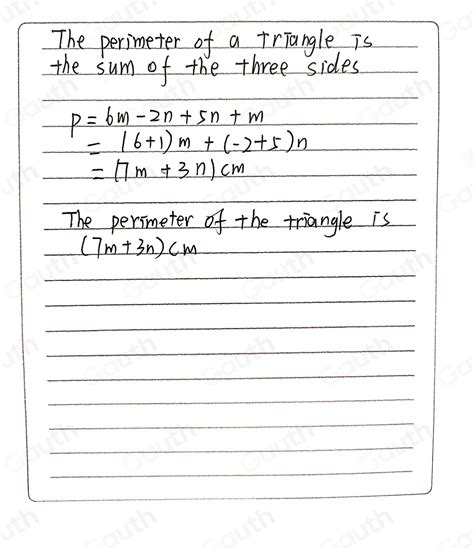 The perimeter of a triangle is
the sum of the three sides
P = 6m - 2n + 5n + m
= (6+1)m + (-2+5)n
= (7m + 3n) cm
The perimeter of the triangle is
(7m + 3n) cm
Gauth